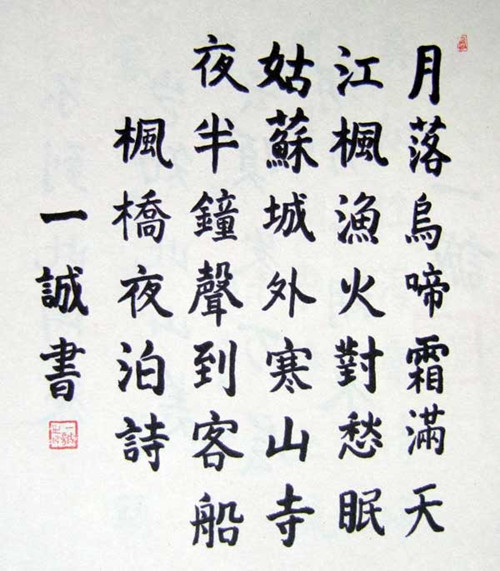 月落烏啼霜滿天
江楓漁火對愁眠
姑蘇城外寒山寺
夜半鐘聲到客船
楓橋夜泊詩
一誠書